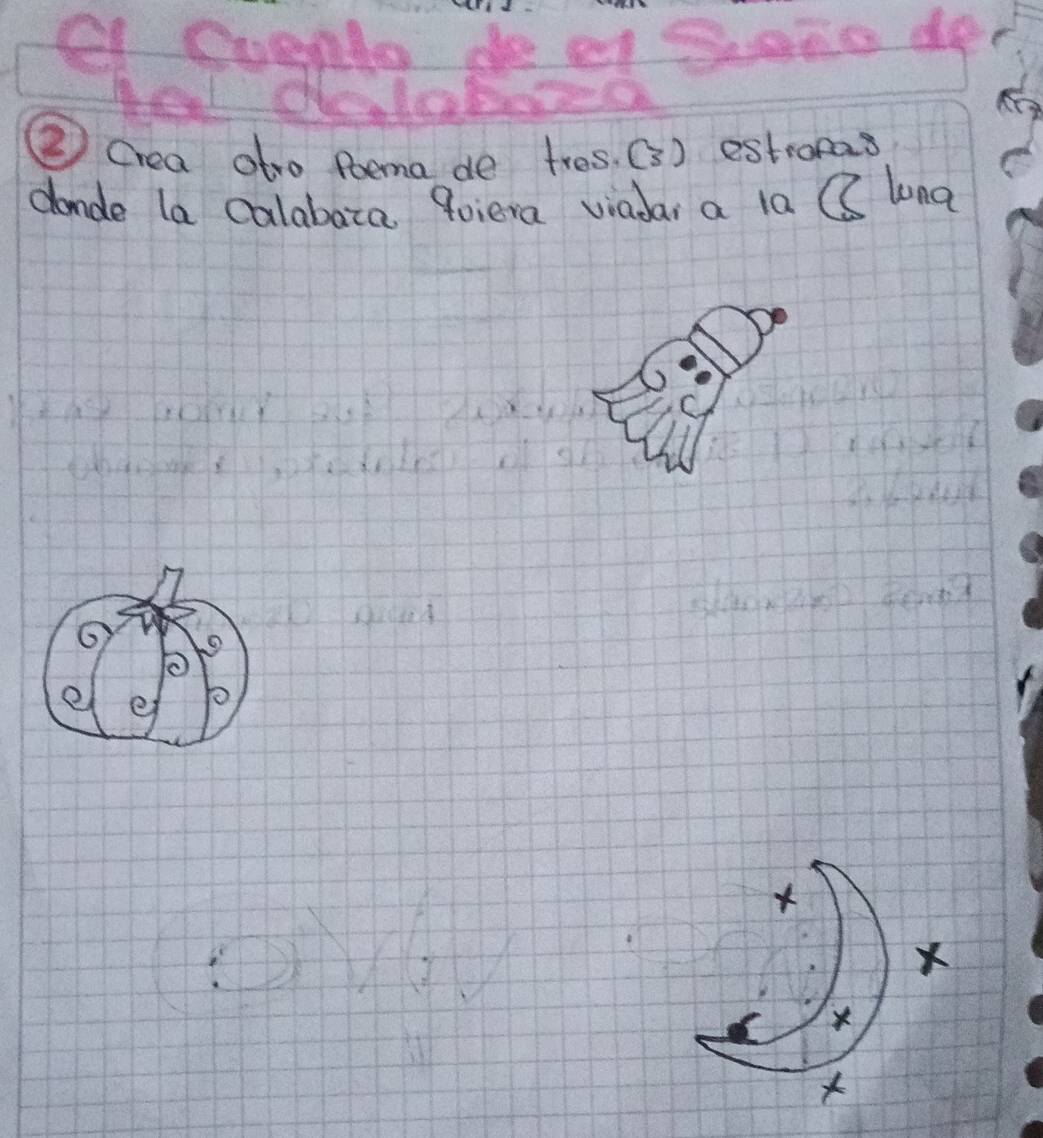 el Cuento de el Sueño de
la Calabaza
② Crea otro Poema de tres. (3) estrofas
donde la Calabaza quiera viajar a la luna